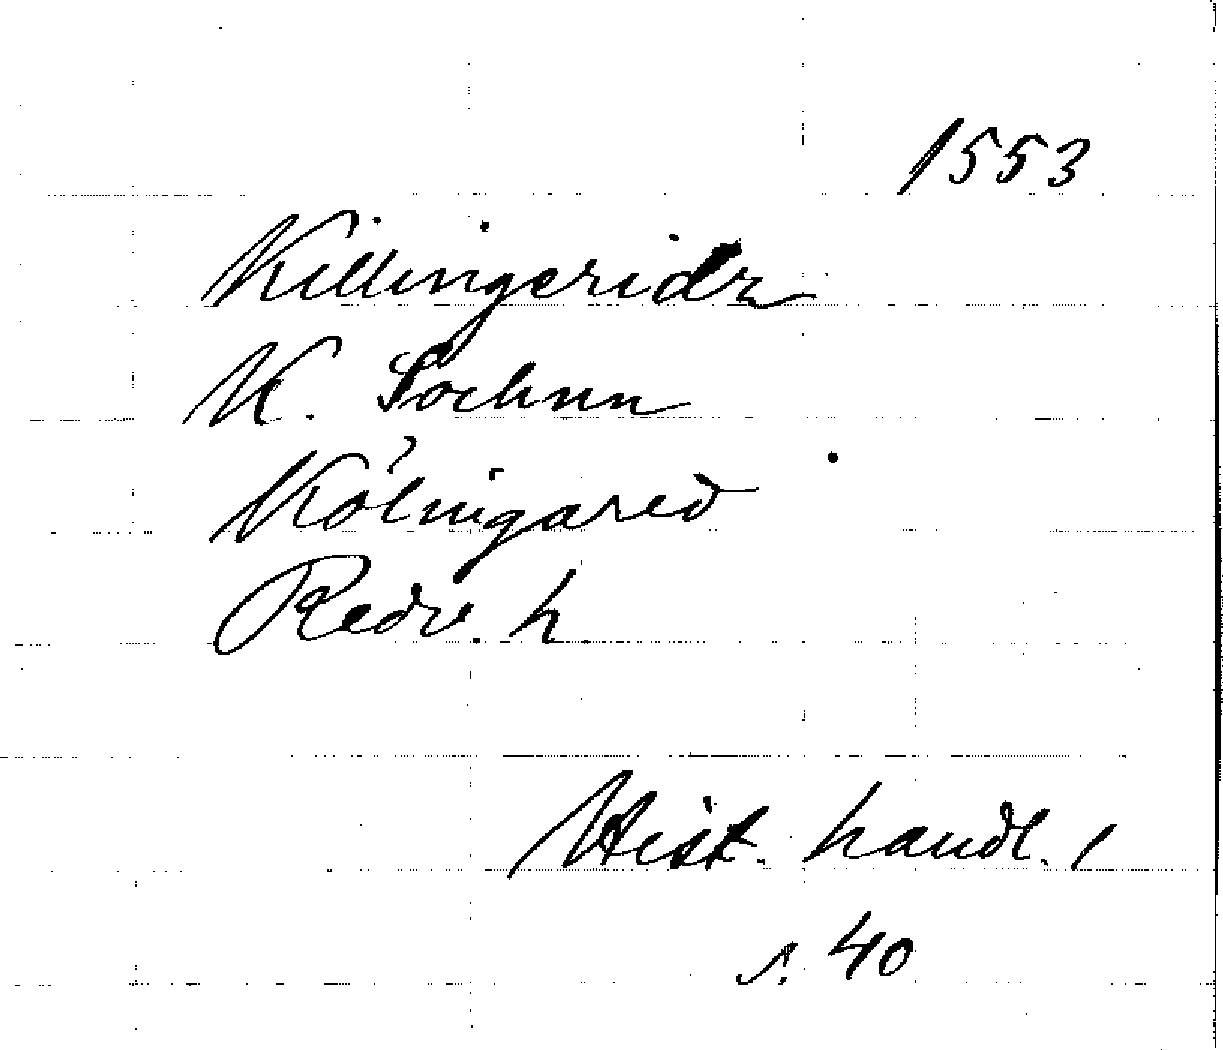 1553
Killingeridz
K. Sochnn
Kölingared
Redv. h
Hist. handl. 1
s. 40